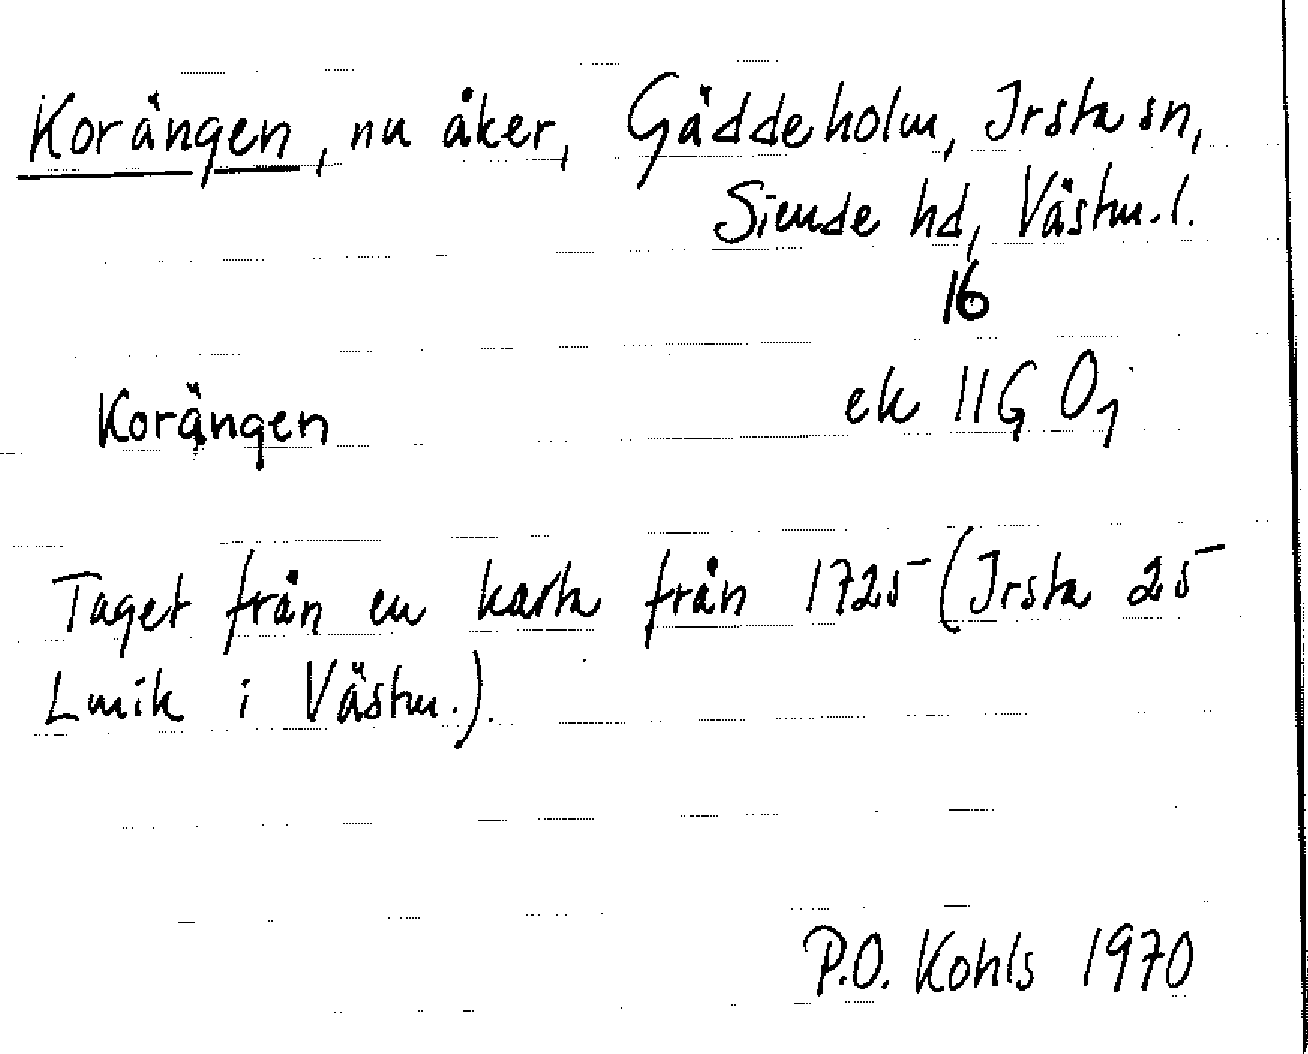 Korängen, nu åker, Gäddeholm, Irsta sn,
Siende hd, Västm. l.
16
Korängen ek 11G 0j
Taget från en karta från 1725 (Irsta 25
Lmik i Västm.).
P.O. Kohls 1970